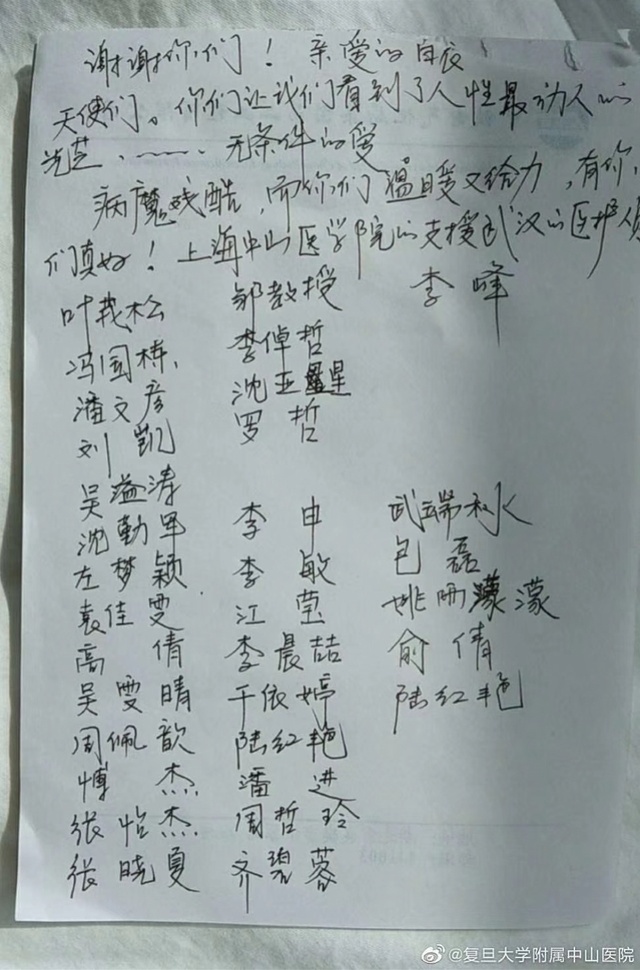 谢谢你们！亲爱的白衣
天使们。你们让我们看到了人性最动人的
光芒、——无条件的爱。
病魔残酷，而你们温暖又给力，有你，
们真好！上海中山医学院的支援武汉的医护人员
叶茂松 邹教授 李峰
冯国栋 李倬哲
潘文彦 沈亚星
刘凯 罗哲
吴溢涛
沈勤军 李申 武端秋
左梦颖 李敏 包磊
袁佳雯 江莹 姚雨濛
高倩 李晨喆 俞倩
吴雯晴 于依婷 陆红艳
周佩歆 陆红艳
傅杰 潘进
张怡杰 周哲玲
张晓夏 齐碧蓉
@复旦大学附属中山医院